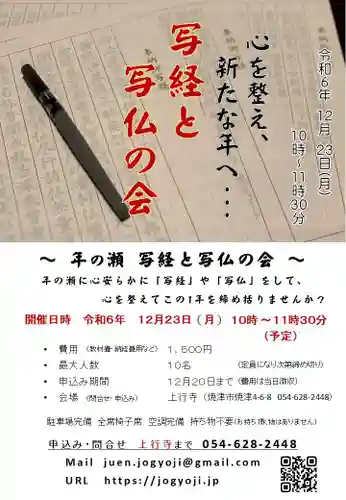 令和6年 12月 23日(月)
10時~11時30分
心を整え、
新たな年へ・・・
写経と
写仏の会
~ 年の瀬 写経と写仏の会 ~
年の瀬に心安らかに「写経」や「写仏」をして、
心を整えてこの1年を締め括りませんか?
開催日時 令和6年 12月23日(月) 10時~11時30分
(予定)
・ 費用 (教材費・納経費用など) 1,500円
・ 最大人数 10名 (定員になり次第締め切り)
・ 申込み期間 12月20日まで (費用は当日徴収)
・ 会場 (問合せ・申込み) 上行寺 (焼津市焼津4-6-8 054-628-2448)
駐車場完備 全席椅子席 空調完備 持ち物不要(お持ち頂く物はありません)
申込み・問合せ 上行寺まで 054-628-2448
Mail juen.jogyoji@gmail.com
URL https://jogyoji.jp